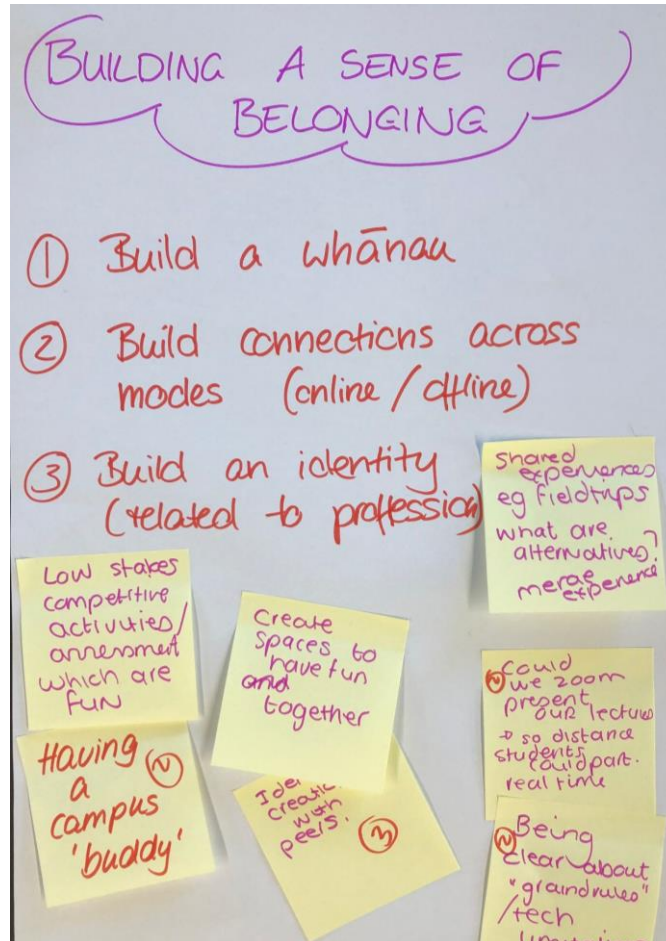 BUILDING A SENSE OF
BELONGING
① Build a whānau
② Build connections across
modes (online / offline)
③ Build an identity
(related to profession)
Shared
experiences
eg fieldtrips
what are
alternatives?
merge
experience
Low stakes
competitive
activities/
assessment
which are
FUN
Create
spaces to
have fun
and
together
Having
a
campus
'buddy'
②
creatio
with
peers.
③
② Could
we zoom
present
our lectures
→ so distance
students
could part.
real time
② Being
clear about
"groundrules"
/tech